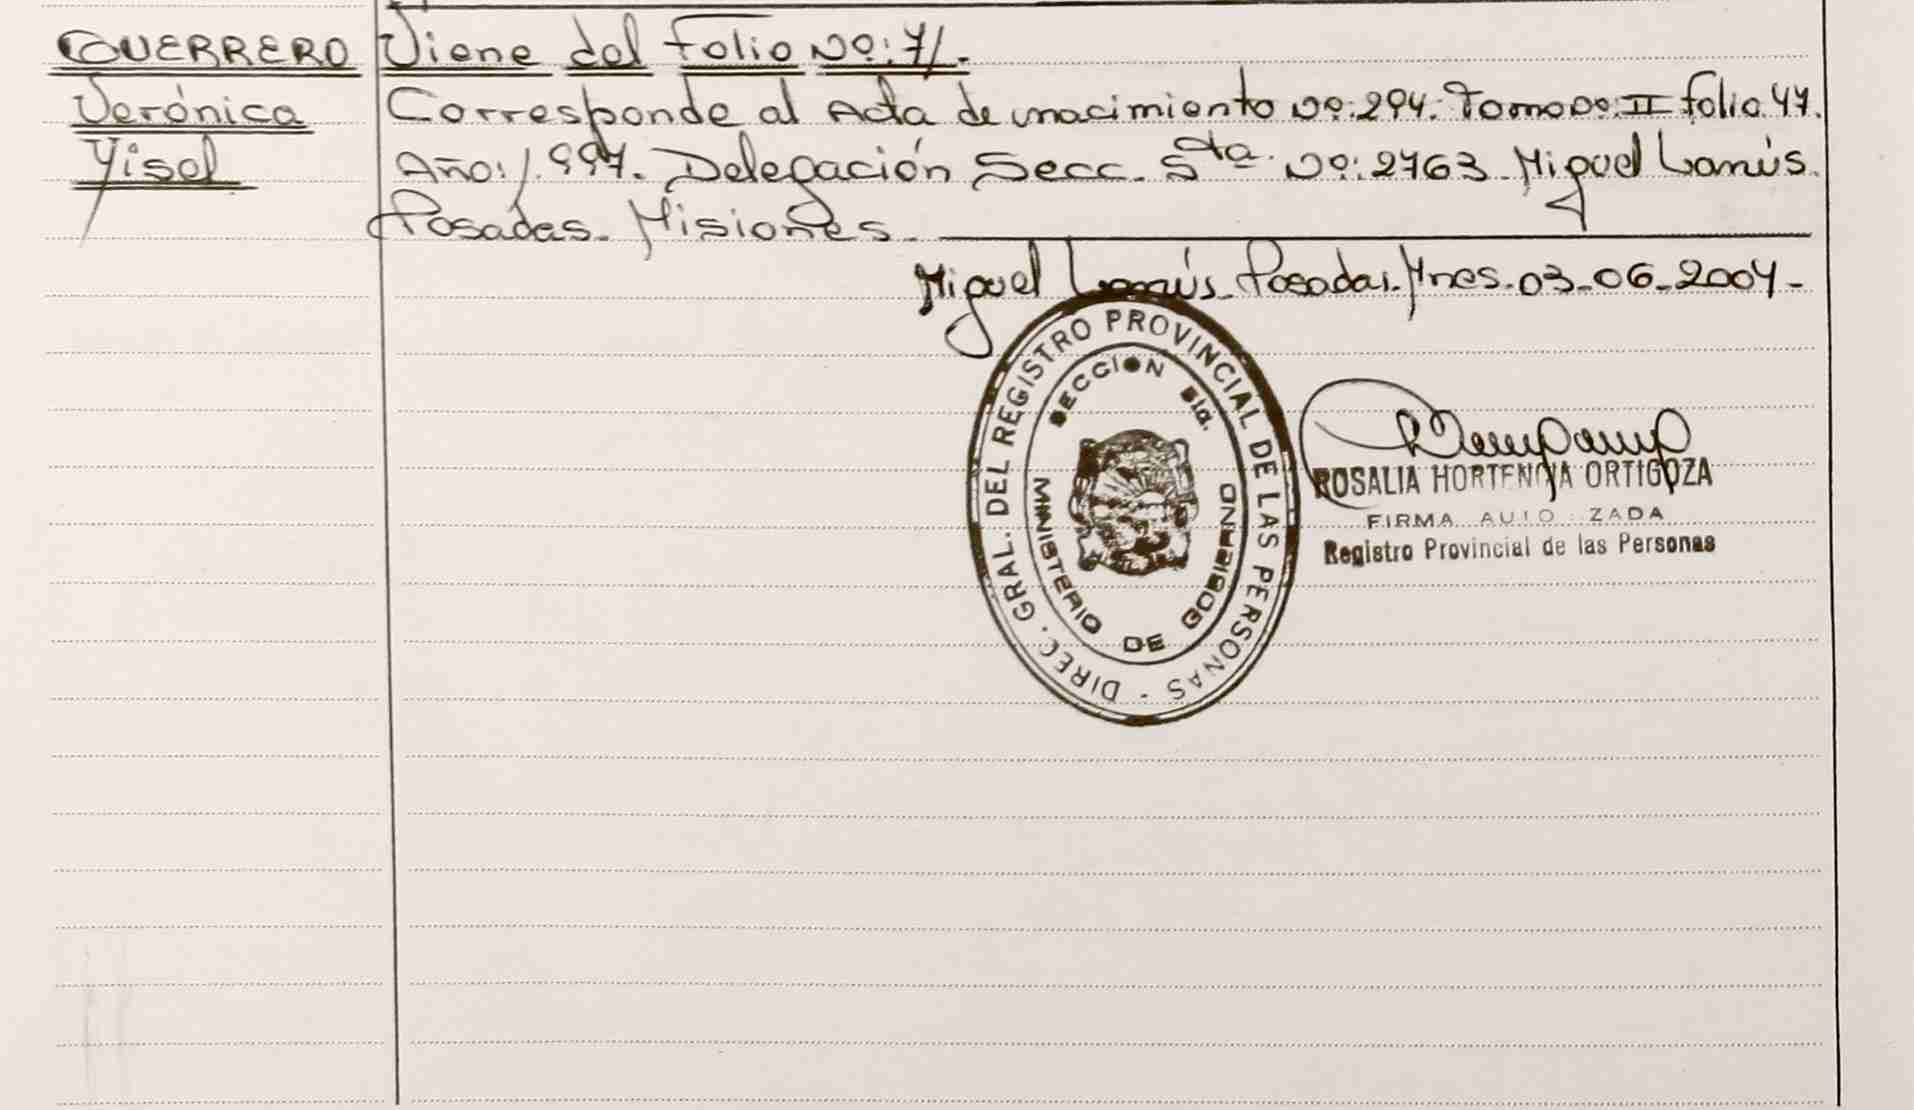 GUERRERO
Verónica
Yisel
Viene del Folio Nº: 71.
Corresponde al Acta de nacimiento Nº: 294. Tomo Nº: II folio 47.
Año: 1.997. Delegación Secc. 5ta. Nº: 2763. Miguel Lanús.
Posadas. Misiones.
Miguel Lanús. Posadas. Mnes. 03-06-2004-
DIREC. GRAL. DEL REGISTRO PROVINCIAL DE LAS PERSONAS -
SECCION 5ta.
MINISTERIO DE GOBIERNO
ROSALIA HORTENCIA ORTIGOZA
FIRMA AUTO ZADA
Registro Provincial de las Personas